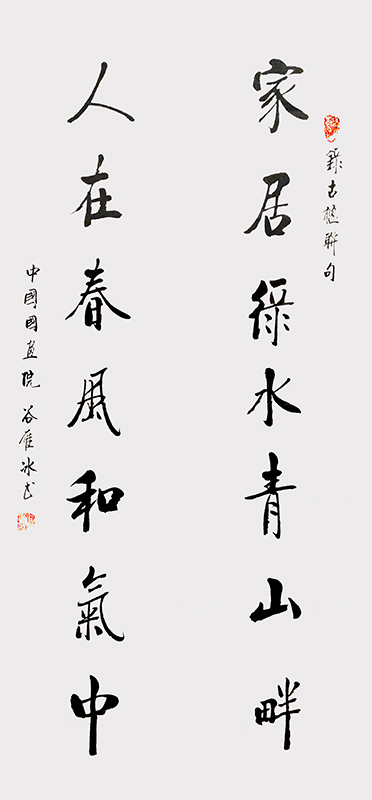 錄古楹聯句
家居綠水青山畔
人在春風和氣中
中國國畫院 谷雁冰书